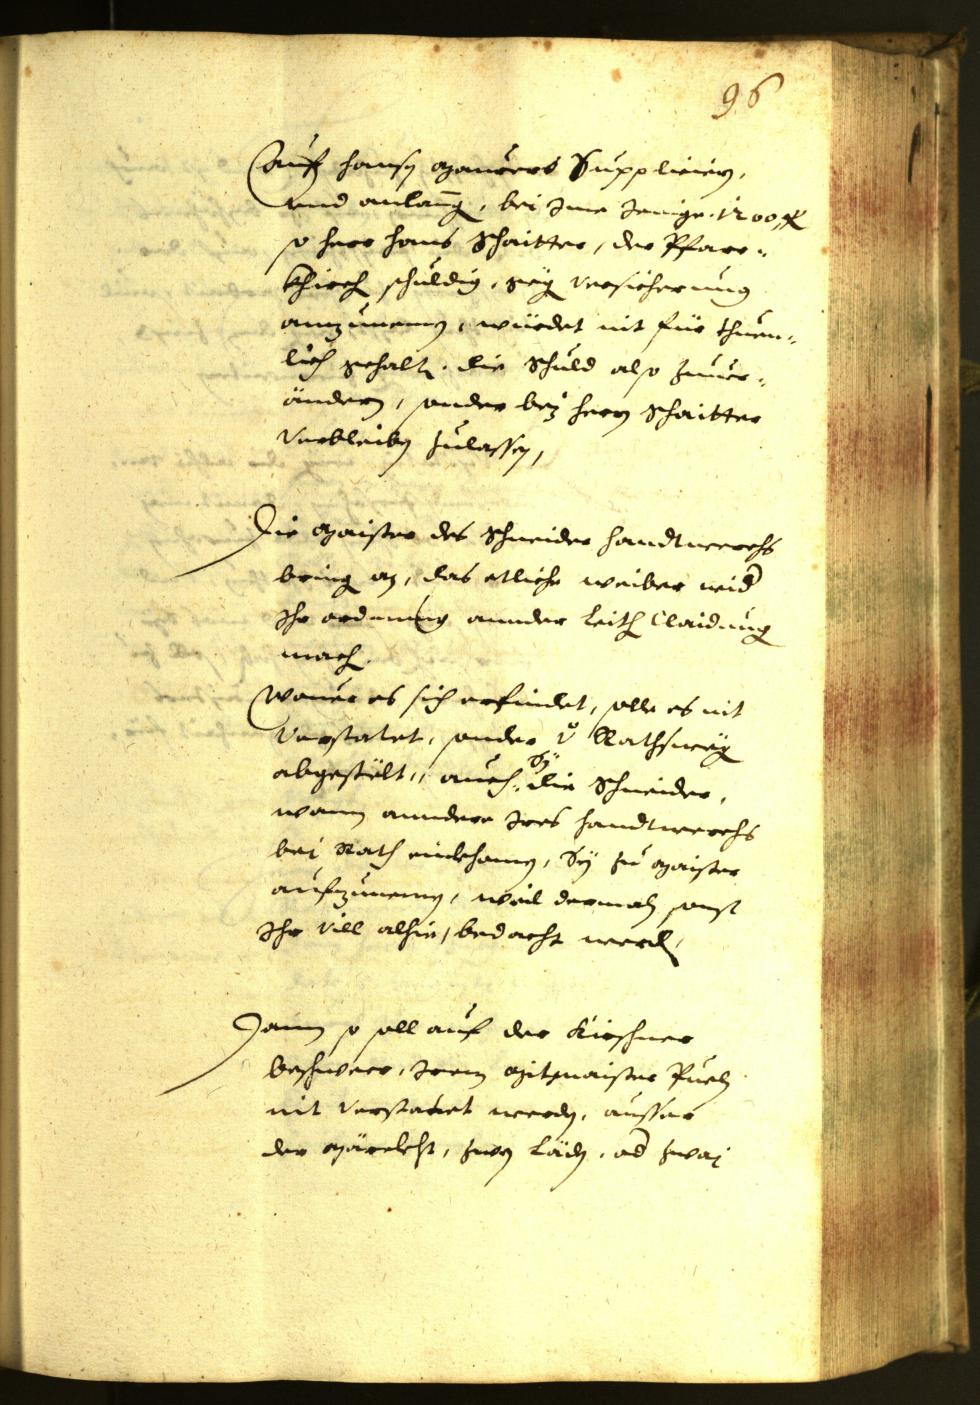 96
Auf Hansn Maurers Supplicirn,
und anlang, bei Ime Jenige 1200 fl
so Herr Hans Schaitter, der Pfarr-
khirch schuldig, gegen versicherung
anzunemen, würdet nit für thuen-
lich gehalten. die Schuld also zuver-
ändern, sonder bey Herrn Schaitter
verbleiben zulassen,
Die Maister des Schneider Handtwerchs
bring an, das etliche weiber wider
Ihr ordnung annder Leith Claidung
mach.
Wover es sich erfindet, solle es nit
verstatet, sonder von Rathsweg
abgestölt, auch Sy die Schneider,
wann anndere Ires Handtwerchs
bei Rath einkhomen, Sy zu Maister
aufzunemen, weil dermaln sonst
Ihr vill alhie, bedacht werden,
Dann so soll auf der Kirschner
beschwer, Irem Mitmaister
nit verstatet werden, ausser
der Märckht, zwen Läden, oder zwai